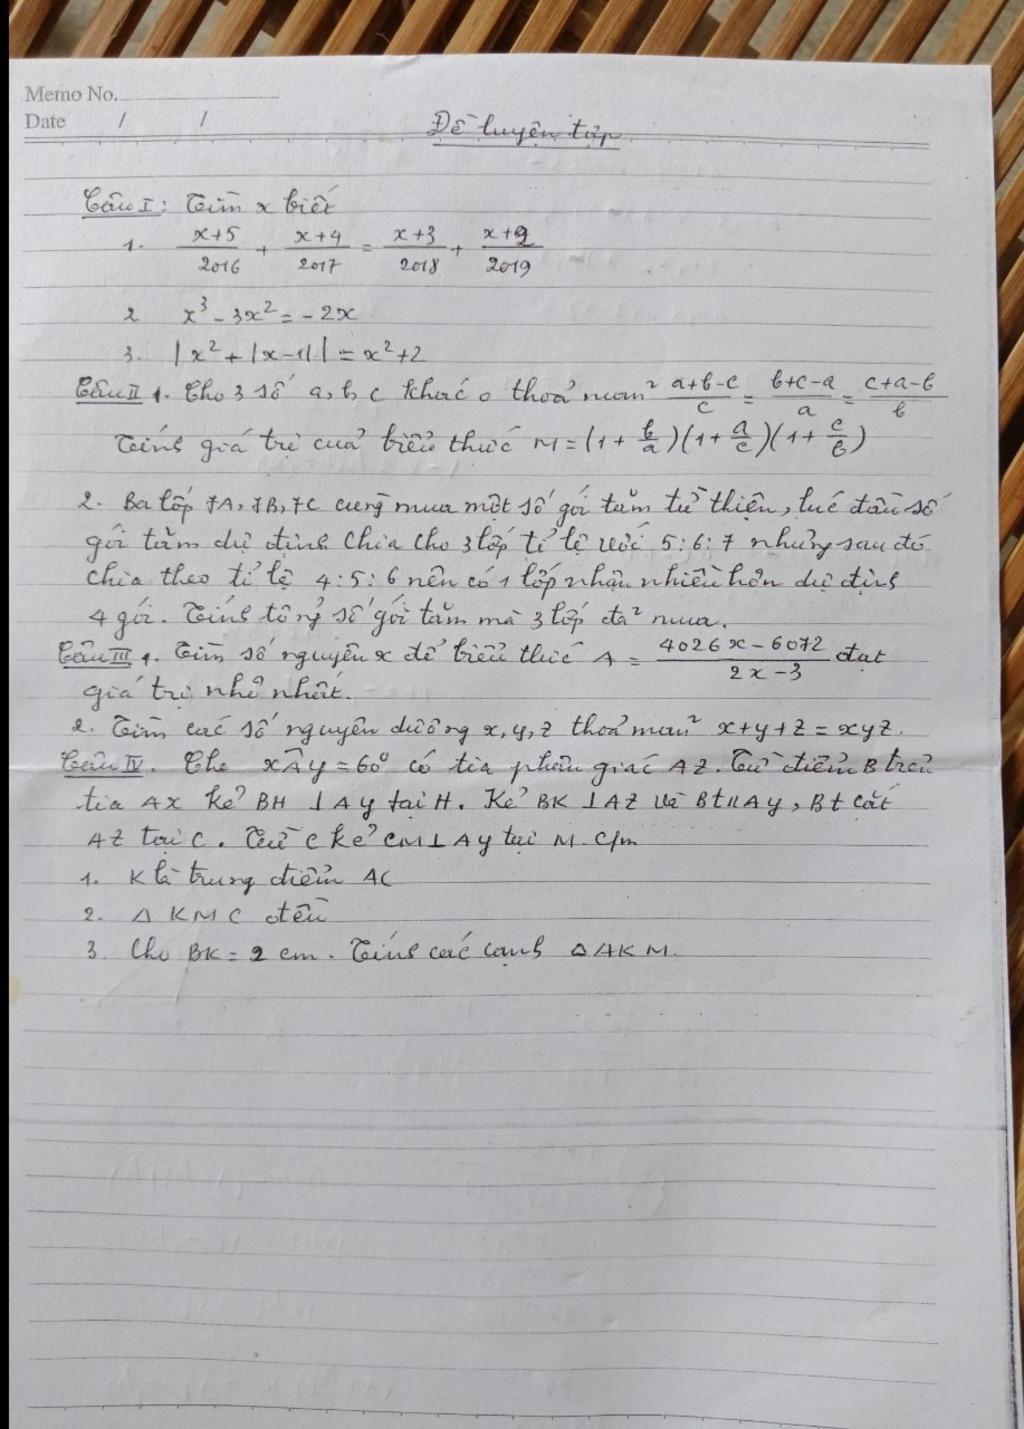 Memo No.
Date / /
Đề luyện tập
Câu I: Tìm x biết
1. x+5/2016 + x+4/2017 = x+3/2018 + x+2/2019
2 x³ - 3x² = - 2x
3. |x² + |x-1|| = x² + 2
Câu II 1. Cho 3 số a, b, c khác 0 thoả mãn a+b-c/c = b+c-a/a = c+a-b/b
Tính giá trị của biểu thức M = (1 + b/a)(1 + a/c)(1 + c/b)
2. Ba lớp 7A, 7B, 7C cùng mua một số gói tăm từ thiện, lúc đầu số
gói tăm dự định chia cho 3 lớp tỉ lệ với 5:6:7 nhưng sau đó
chia theo tỉ lệ 4:5:6 nên có 1 lớp nhận nhiều hơn dự định
4 gói. Tính tổng số gói tăm mà 3 lớp đã mua.
Câu III 1. Tìm số nguyên x để biểu thức A = 4026x - 6072/2x - 3 đạt
giá trị nhỏ nhất.
2. Tìm các số nguyên dương x, y, z thoả mãn x+y+z = xyz.
Câu IV. Cho xÂy = 60° có tia phân giác AZ. Từ điểm B trên
tia Ax kẻ BH ⊥ Ay tại H. Kẻ BK ⊥ AZ và Bt // Ay, Bt cắt
AZ tại C. Từ C kẻ CM ⊥ Ay tại M. C/m
1. K là trung điểm AC
2. Δ KMC đều
3. Cho BK = 2 cm. Tính các cạnh Δ AKM.